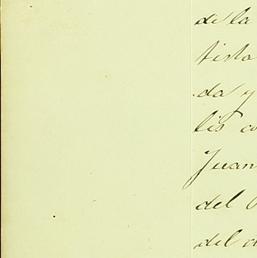 de la
tisto
da y
lis co
Juan
del
del